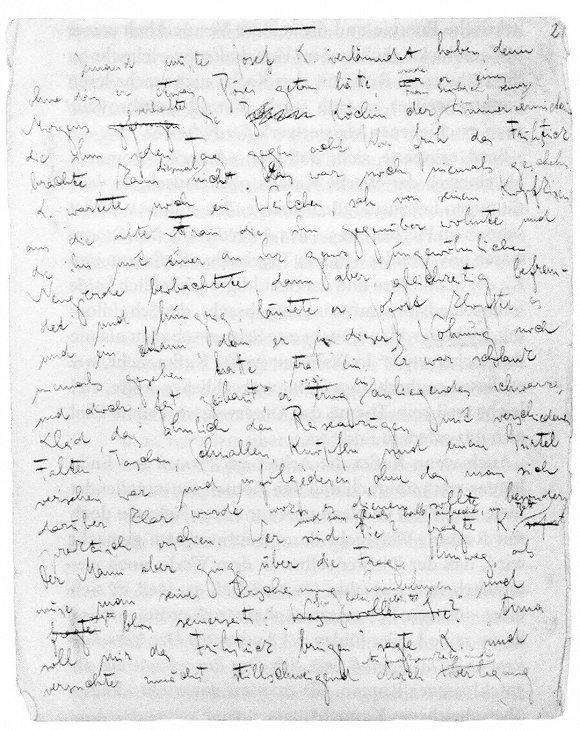 2
Jemand musste Josef K. verläumdet haben, denn
ohne dass er etwas Böses getan hätte, wurde er eines
Morgens verhaftet gefangen. Die Köchin der Zimmervermieterin,
die ihm jeden Tag gegen acht Uhr früh das Frühstück
brachte kam diesmal nicht. Das war noch niemals geschehn.
K. wartete noch ein Weilchen, sah von seinem Kopfkissen
aus die alte Frau die ihm gegenüber wohnte und
die ihn mit einer an ihr ganz ungewöhnlichen
Neugierde beobachtete, dann aber gleichzeitig befrem-
det und hungrig läutete er. Sofort klopfte es
und ein Mann, den er in dieser Wohnung noch
niemals gesehen hatte trat ein. Er war schlank
und doch fest gebaut, er trug ein anliegendes schwarzes
Kleid, das ähnlich den Reiseanzügen mit verschiedenen
Falten, Taschen, Schnallen, Knöpfen und einem Gürtel
versehen war und infolgedessen, ohne dass man sich
darüber klar wurde, wozu es dienen sollte, besonders
praktisch erschien. Wer sind Sie? fragte K. und sass gleich halb aufrecht im Bett
Der Mann aber ging über die Frage hinweg, als
müsse man seine Erscheinung hinnehmen und
sagte bloss seinerseits: Sie haben geläutet? Was wollen Sie? Anna
soll mir das Frühstück bringen sagte K. und
versuchte zunächst stillschweigend durch Aufmerksamkeit und Überlegung